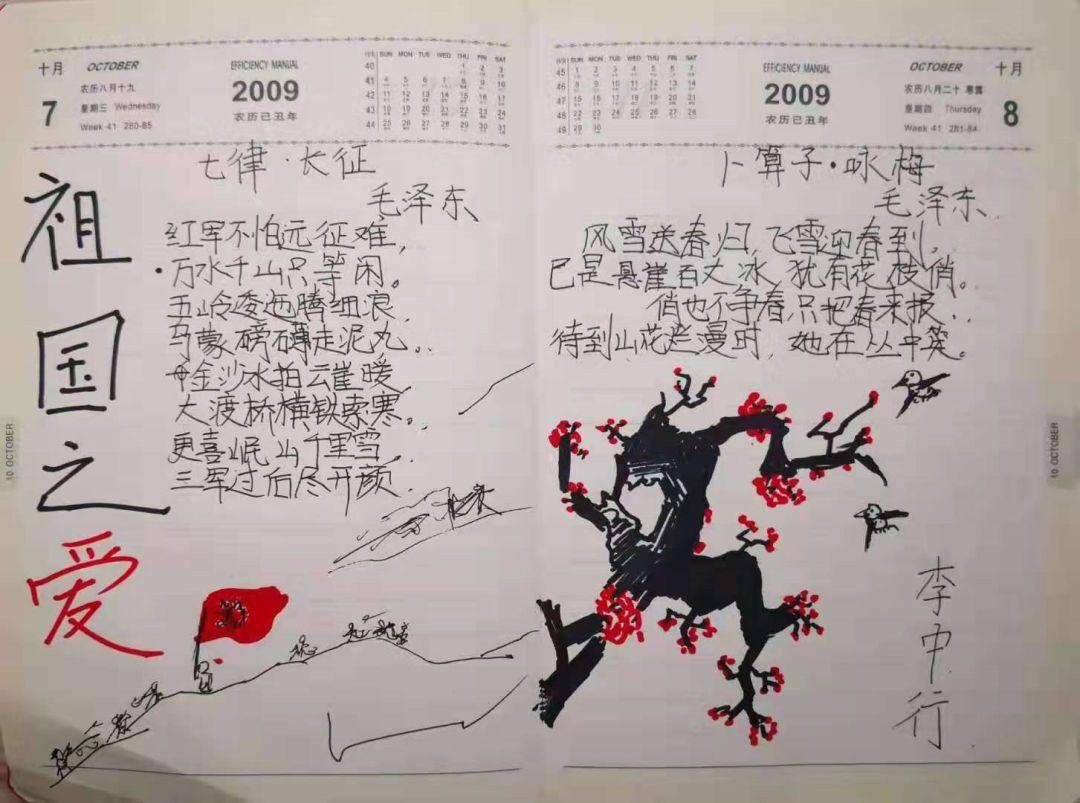 十月 OCTOBER EFFICIENCY MANUAL
7 农历八月十九 2009
星期三 Wednesday 农历己丑年
Week 41 280-85
周次 SUN MON TUE WED THU FRI SAT
40 1 2 3
41 4 5 6 7 8 9 10
42 11 12 13 14 15 16 17
43 18 19 20 21 22 23 24
44 25 26 27 28 29 30 31
七律·长征
毛泽东
红军不怕远征难,
万水千山只等闲。
五岭逶迤腾细浪,
乌蒙磅礴走泥丸。
金沙水拍云崖暖,
大渡桥横铁索寒。
更喜岷山千里雪,
三军过后尽开颜.
祖国之爱
10 OCTOBER
周次 SUN MON TUE WED THU FRI SAT
45 1 2 3 4 5 6 7
46 8 9 10 11 12 13 14
47 15 16 17 18 19 20 21
48 22 23 24 25 26 27 28
49 29 30
EFFICIENCY MANUAL OCTOBER 十月
2009 农历八月二十 寒露 8
农历己丑年 星期四 Thursday
Week 41 281-84
卜算子·咏梅
毛泽东.
风雪送春归,飞雪迎春到,
已是悬崖百丈冰,犹有花枝俏。
俏也不争春只把春来报,
待到山花烂漫时,她在丛中笑。
李中行
10 OCTOBER